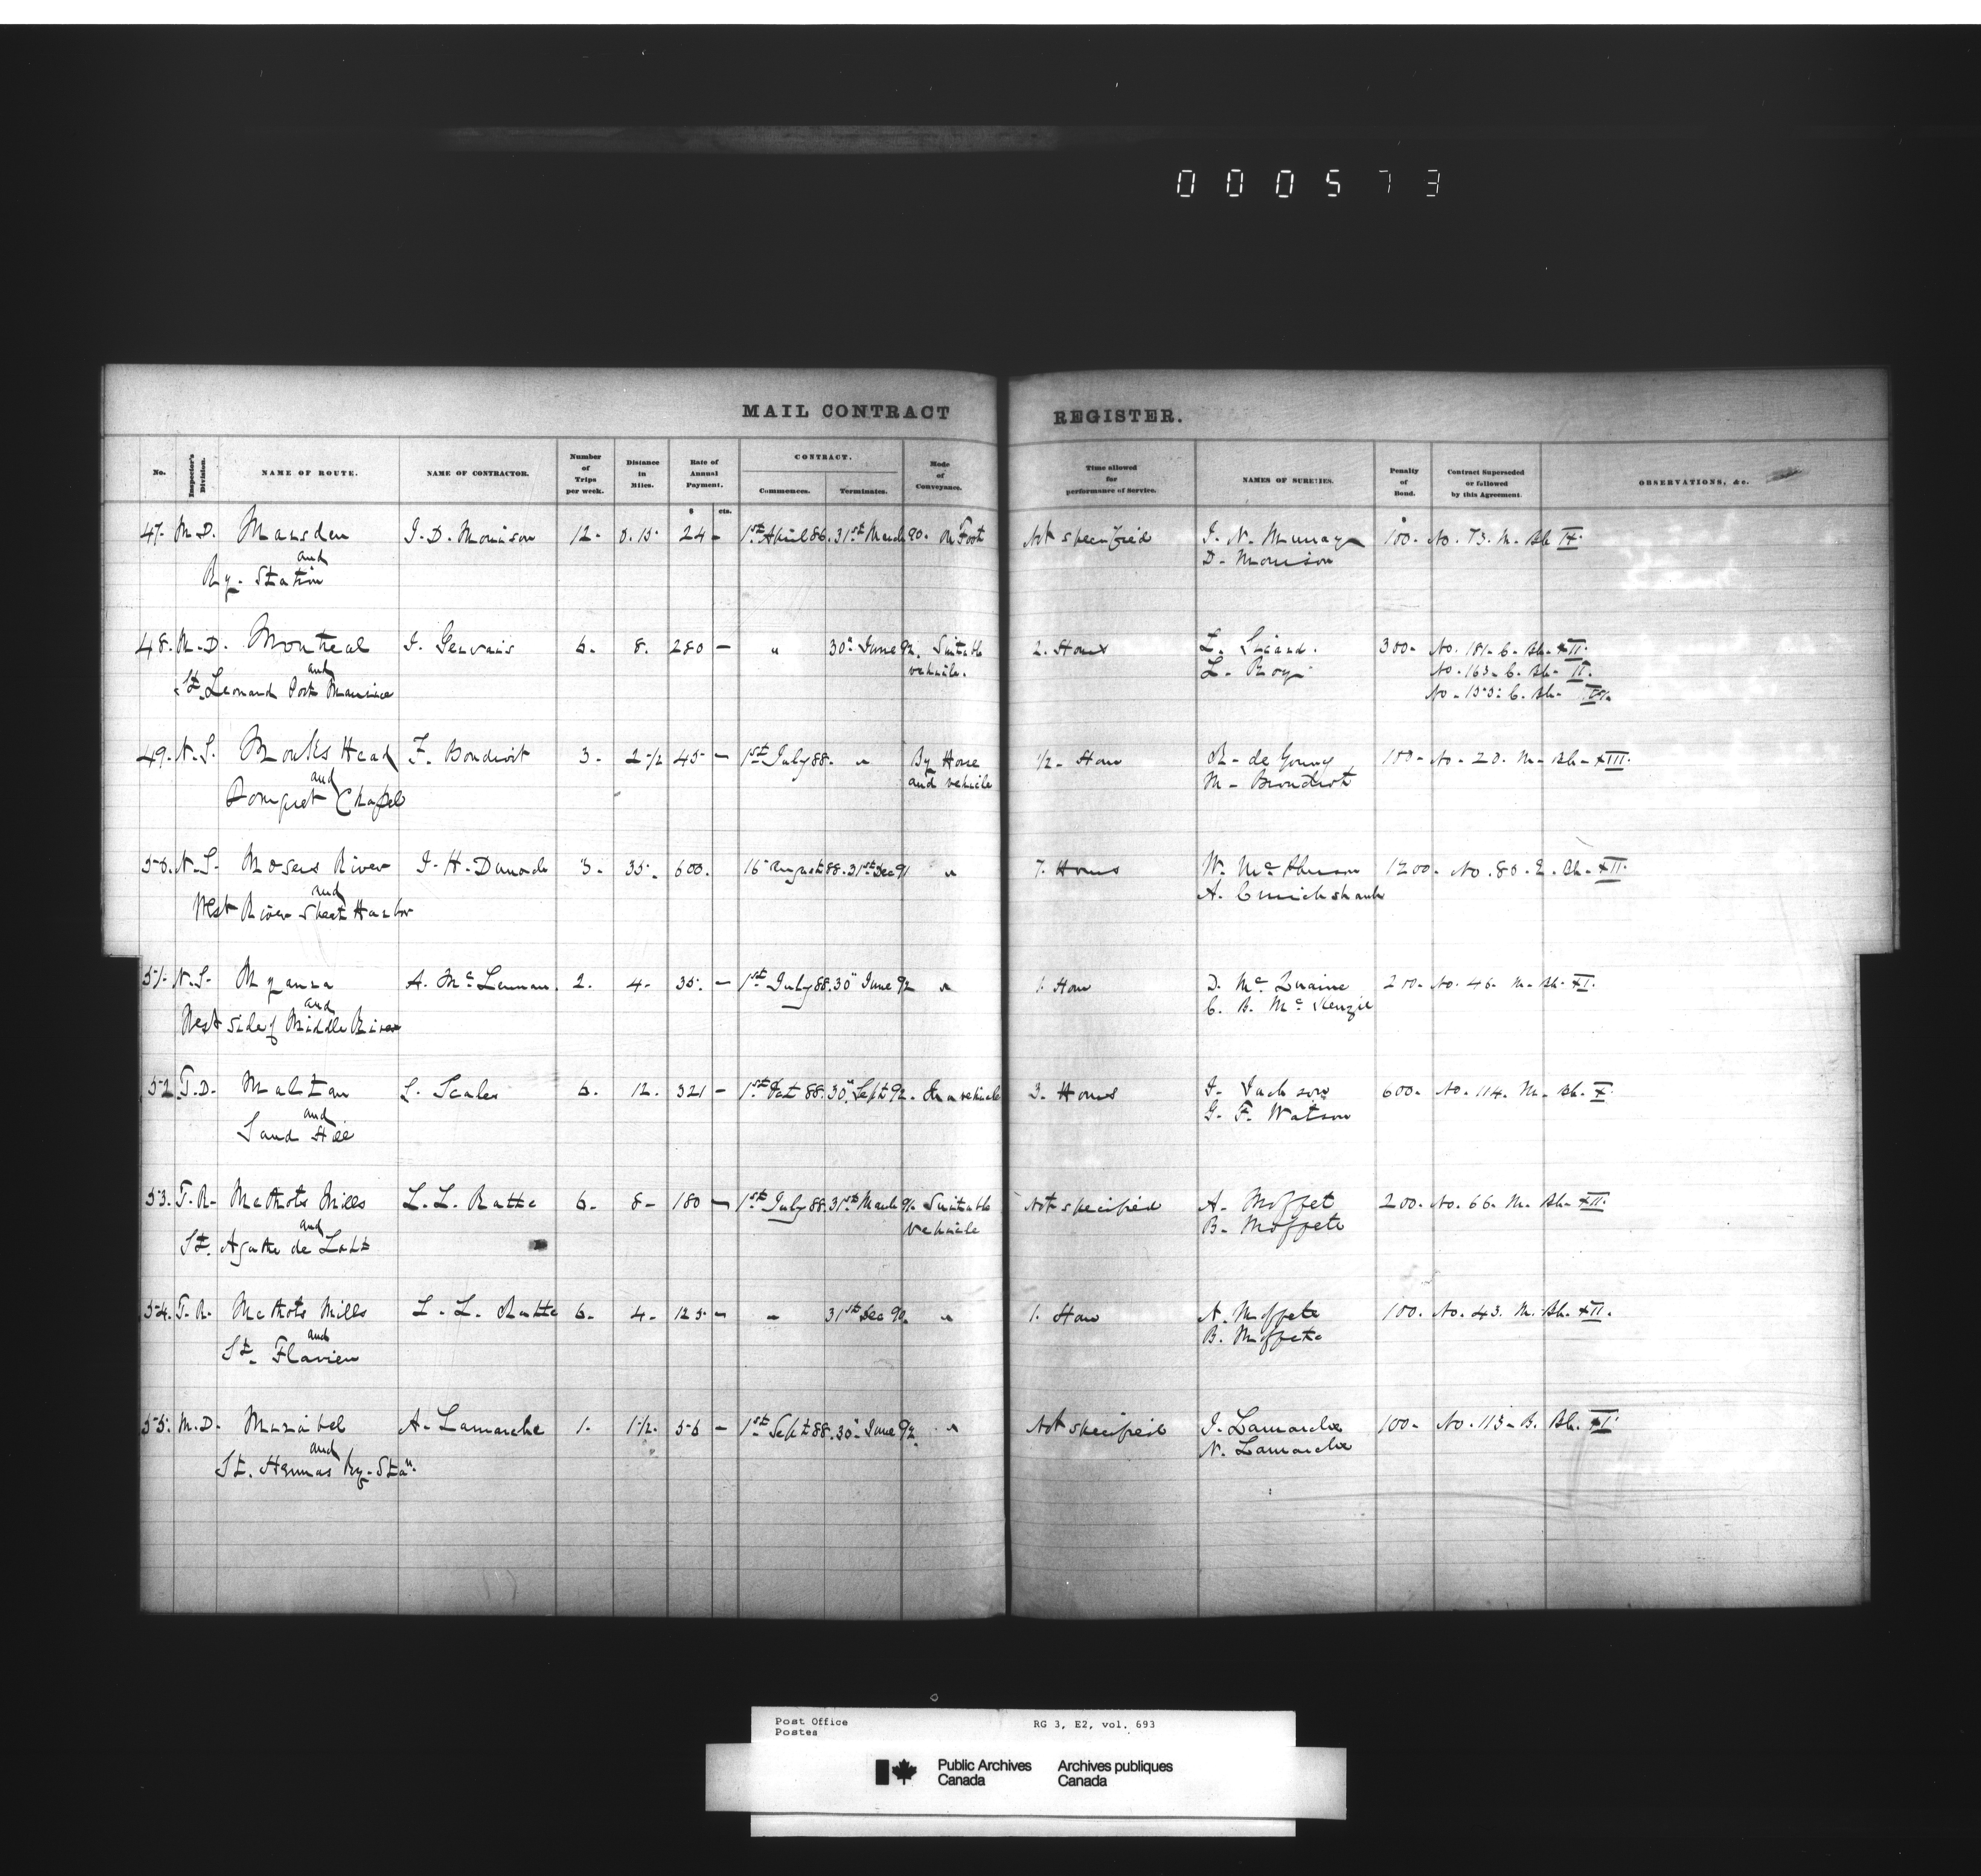 000573
MAIL CONTRACT REGISTER.
No. Inspector's Division. NAME OF ROUTE. NAME OF CONTRACTOR. Number of Trips per week. Distance in Miles. Rate of Annual Payment. CONTRACT. Commences. Terminates. Mode of Conveyance. Time allowed for performance of Service. NAMES OF SURETIES. Penalty of Bond. Contract Superseded or followed by this Agreement. OBSERVATIONS, &c.
$ cts.
47. M.D. Marsden J. D. Morrison 12. 0.15. 24 - 1st April 86. 31st March 90. On Foot Not specified J. N. Murray 100. No. 73. M. Bk IX.
and D. Morrison
Ry. Station
48. M.D. Montreal J. Gervais 6. 8. 280 - " 30" June 92. Suitable 2. Hours L. 300. No. 181. C. Bk. XII.
and vehicle. L. Roy No. 163. C. Bk. II.
St. Leonard Port Maurice No. 155. C. Bk.
49. N.S. Monks Head F. Boudroit 3. 2 1/2 45 - 1st July 88. " By Horse 1/2 Hour R. de Young 100. No. 20. M. Bk. XIII.
and and vehicle M. Boudroit
Pomquet Chapel
50. N.S. Mosers River J. H. Dunn 3. 35. 600. 16" August 88. 31st Dec 91 " 7. Hours W. 1200. No. 80. Q. Bk. XII.
and A. Cruickshank
West River Sheet Harbor
51. N.S. Myanza A. McLennan. 2. 4. 35. - 1st July 88. 30" June 92 " 1. Hour D. Mc 200. No. 46. M. Bk. XI.
and C. B. McKenzie
West side of Middle River
52. T.D. Maltan S. Scales 6. 12. 321 - 1st Oct 88. 30" Sept 92. In a vehicle 3. Hours J. Jackson 600. No. 114. M. Bk. X.
and G. F. Watson
Sand Hill
53. T.R. Methots Mills L. L. Rathe 6. 8. 180 - 1st July 88. 31st March 91. Suitable Not specified A. Moffet 200. No. 66. M. Bk. XII.
and vehicle B. Moffete
St. Agathe de Lotb
54. T.R. Methots Mills L. L. Rathe 6. 4. 125 - " 31st Dec 90. " 1. Hour A. Moffete 100. No. 43. M. Bk. XII.
and B. Moffete
St. Flavien
55. M.D. Mirabel A. Lamarche 1. 1 1/2. 56 - 1st Sept 88. 30" June 92. " Not specified J. Lamarche 100. No. 113. B. Bk. XI.
and N. Lamarche
St. Hermas Ry. Stan.
Post Office RG 3, E2, vol. 693
Postes
Public Archives Archives publiques
Canada Canada